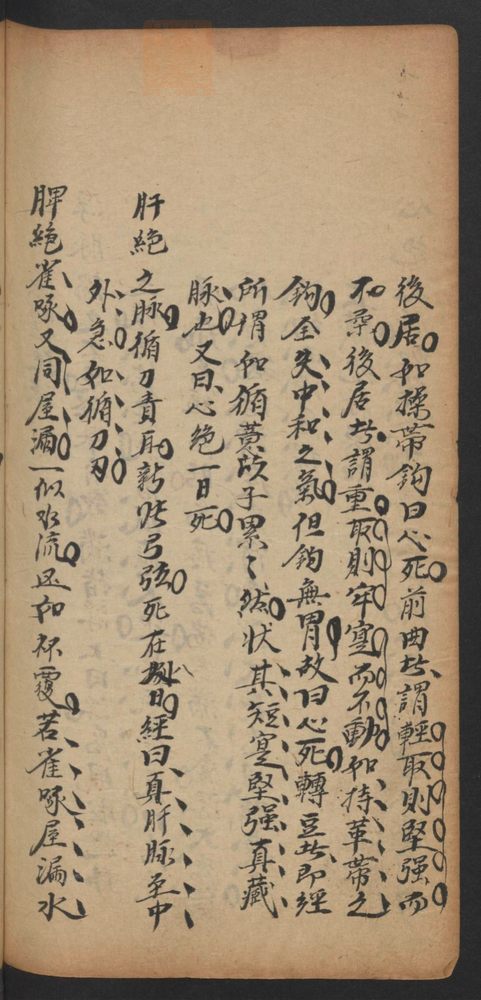 後居如操帶鈎曰心死前曲者謂輕取則堅強而
不柔後居者謂重取則牢寔而不動如持革帶之
鈎全失中和之氣但鈎無胃故曰心死轉豆者即經
所謂如循薏苡子累々然狀其短寔堅強真藏
脉也又曰心絕一日死
肝絕之脉循刀責〻新張弓弦死在八日經曰真肝脉至中
外急如循刀刃
脾絕雀啄又同屋漏一似水流還如杯覆若雀啄屋漏水